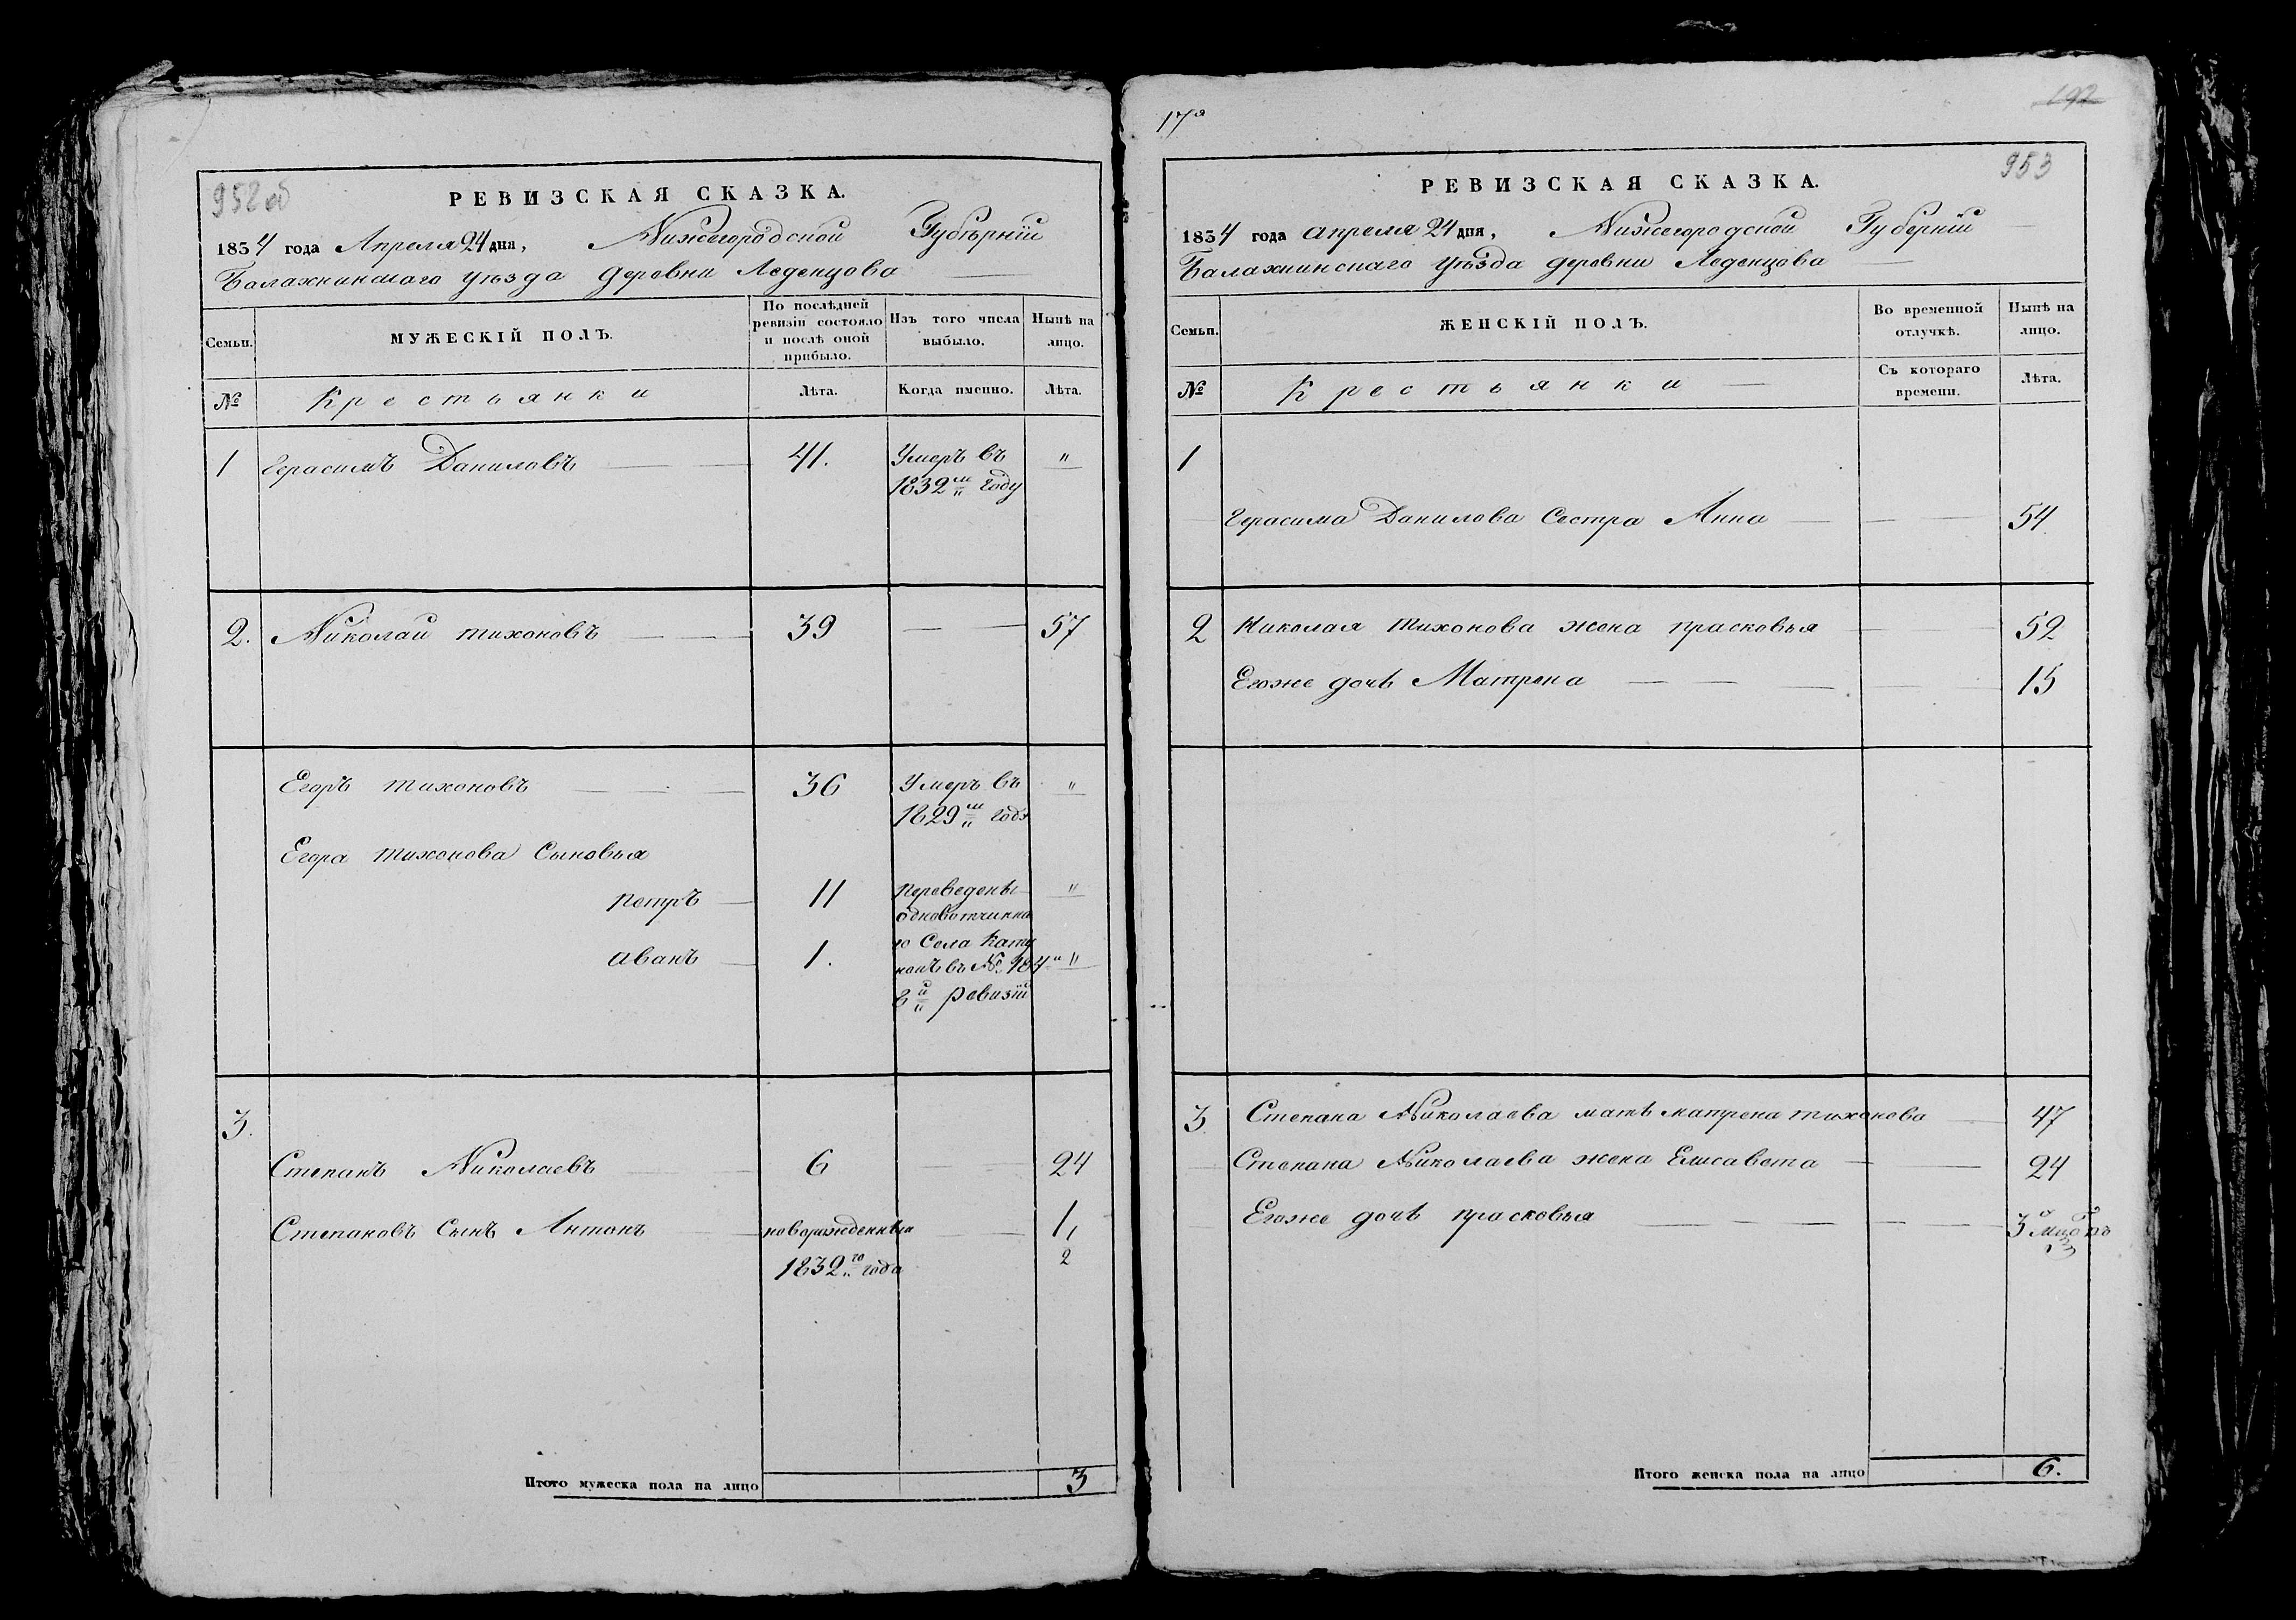 952 об
РЕВИЗСКАЯ СКАЗКА.
1834 года Апреля 24 дня, Нижегородской Губернiи
Балахнинскаго уѣзда деревни Леденцова
Семьи.
МУЖЕСКIЙ ПОЛЪ.
По послѣдней ревизiи состояло и послѣ оной прибыло.
Изъ того числа выбыло.
Нынѣ на лицо.
№
Крестьянки
Лѣта.
Когда именно.
Лѣта.
1 Герасимъ Даниловъ 41. Умеръ въ "
1832м году
2. Николай тихоновъ 39 57
Егоръ тихоновъ 36 Умеръ въ "
1829м годѣ
Егора тихонова Сыновья
петръ 11 переведены "
одновотчинна
ю Села Кату
иванъ 1. нокъ въ № 184 "
8й ревизiи
3.
Степанъ Николаевъ 6 24
Степановъ Сынъ Антонъ новорожденныи 1 1/2
1832го года
Итого мужеска пола на лицо 3
17я
192
953
РЕВИЗСКАЯ СКАЗКА.
1834 года апреля 24 дня, Нижегородской Губернiи
Балахнинскаго уѣзда деревни Леденцова
Семьи.
ЖЕНСКIЙ ПОЛЪ.
Во временной отлучкѣ.
Нынѣ на лицо.
№
Крестьянки
Съ котораго времени.
Лѣта.
1
Герасима Данилова Сестра Анна 54.
2 Николая тихонова жена прасковья 52
Егоже дочь Матрена 15
3 Степана Николаева мать матрена тихонова 47
Степана Николаева жена Елисавета 24
Егоже дочь прасковья 3
Итого женска пола на лицо 6.